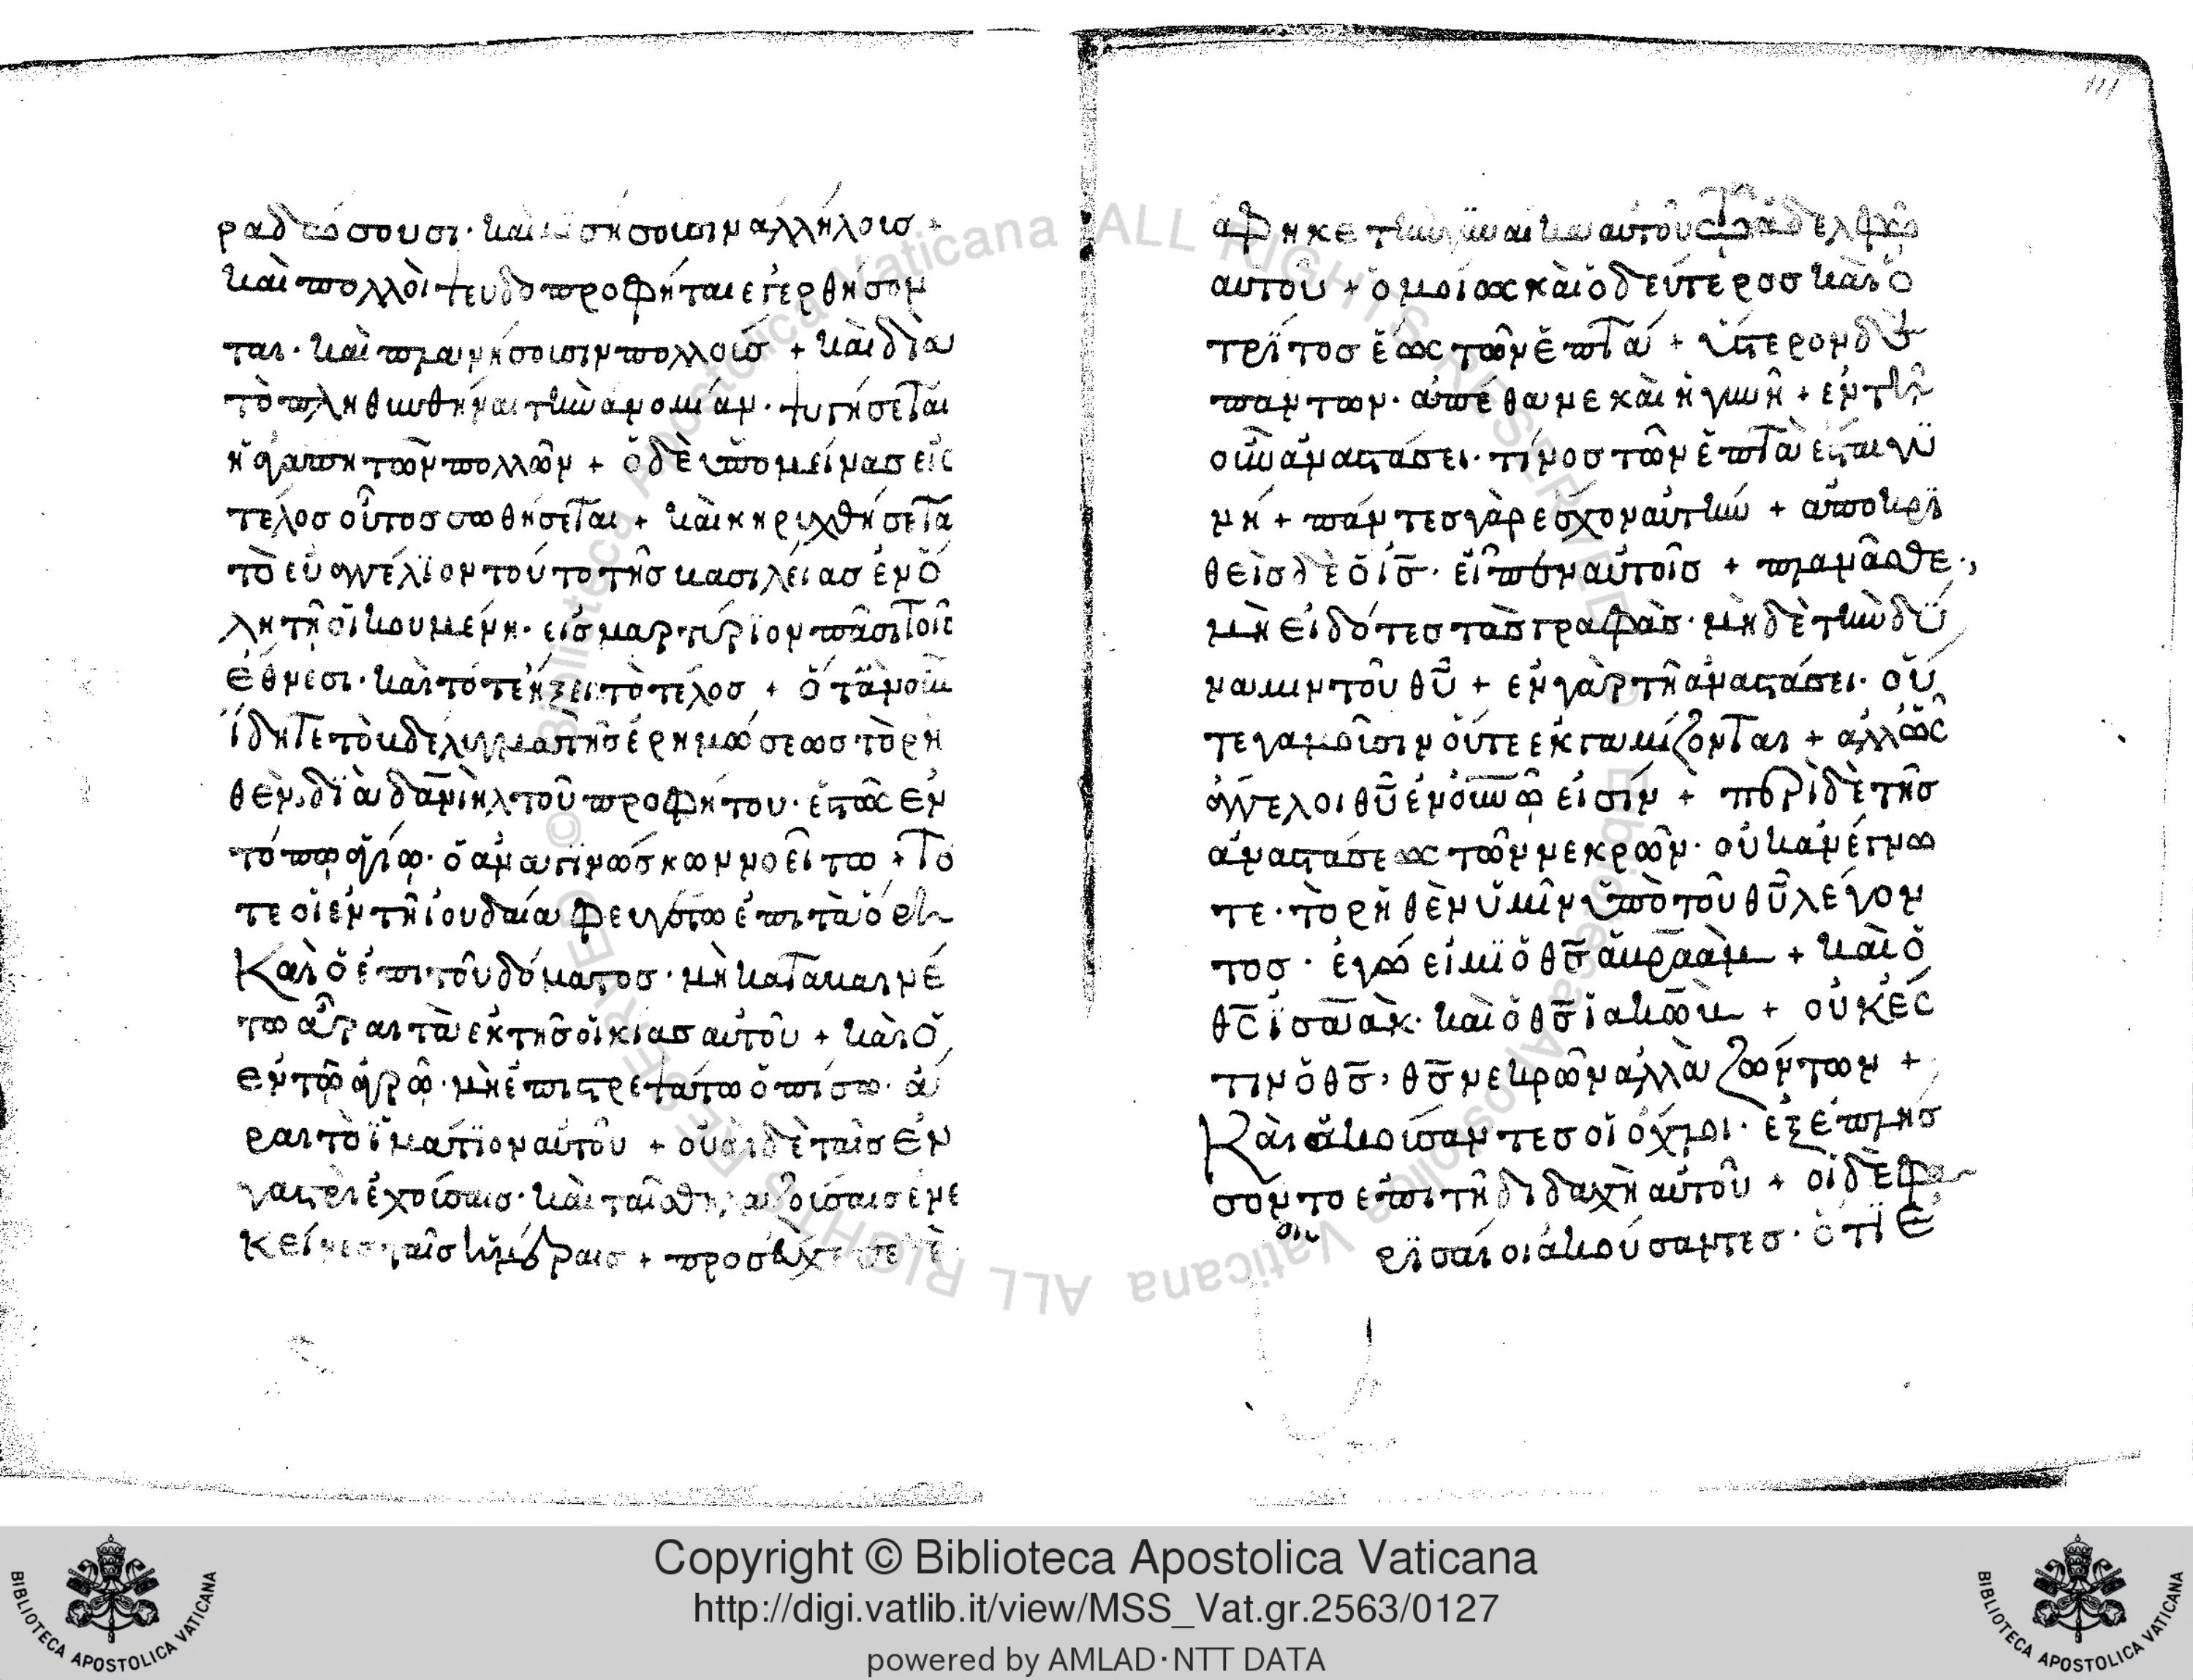 ραδώσουσι· καὶ μισήσουσιν ἀλλήλουσ +
καὶ πολλοὶ ψευδοπροφήται ἐγερθήσον
ται· καὶ πλανήσουσιν πολλούσ + καὶ διὰ
τὸ πληθυνθήναι τὴν ἀνομίαν· ψυγήσεται
ἡ ἀγάπη τῶν πολλῶν + ὁ δὲ ὑπομείνας εἰς
τέλοσ οὗτοσ σωθήσεται + καὶ κηρυχθήσετα
τὸ εὐαγγέλϊον τούτο τῆσ βασιλείασ ἐν ὅ
λη τῆ οἰκουμένη· εἰσ μαρτύρϊον πᾶσι τοῖς
ἔθνεσι· καὶ τότε ἥξει τὸ τέλοσ + ὅταν οὖν
ἴδητε τὸ βδέλυγμα τῆσ ἐρημώσεωσ τὸ ρη
θὲν διὰ δανιὴλ τοῦ προφήτου· ἑστὼς ἐν
τόπω ἁγίω· ὁ ἀναγινώσκων νοείτω + Τό
τε οἱ ἐν τῆ ἰουδαία φευγέτω ἐπι τὰ ὄρη
Καὶ ὁ ἐπι τοῦ δόματοσ· μὴ καταβαινέ
τω ἆραι τὰ ἐκ τῆσ οἰκίασ αὐτοῦ + καὶ ὁ
ἐν τῶ ἀγρῶ· μὴ ἐπιστρεψάτω ὀπίσω· ἆ
ραι τὸ ἱμάτϊον αὐτοῦ + οὐαὶ δὲ ταῖσ ἐν
γαστρὶ ἐχούσαισ· καὶ ταῖσ θηλαζούσαισ ἐν ἐ
κείνεσ ταῖσ ἡμέραισ + προσεύχεσθε
ἀφῆκε τὴν γυναίκα αὐτοῦ τῶ ἀδελφῶ
αὐτοῦ + ὁμοίως καὶ ὁ δεύτεροσ καὶ ὁ
τρίτοσ ἕως τῶν ἑπτά + ὕστερον δὲ
πάντων· ἀπέθανε καὶ ἡ γυνὴ + ἐν τῆ
οὖν ἀναστάσει· τίνοσ τῶν ἑπτὰ ἔσται γϋ
νή + πάντεσ γὰρ ἔσχον αὐτήν + ἀποκρϊ
θεὶσ δὲ ὁ ἰσ· εἶπεν αὐτοῖσ + πλανᾶσθε·,
μὴ εἰδότεσ τὰσ γραφὰσ· μηδὲ τὴν δύ
ναμιν τοῦ θῦ + ἐν γὰρ τῆ ἀναστάσει· οὔ
τε γαμοῦσιν οὔτε ἐκγαμίζονται + ἀλλ ὡς
ἄγγελοι θῦ ἐν οὐνῶ εἰσίν + περὶ δὲ τῆσ
ἀναστάσεως τῶν νεκρῶν· οὐκ ἀνέγνω
τε· τὸ ρηθὲν ὑμῖν ὑπὸ τοῦ θῦ λέγον
τοσ· ἐγώ εἰμϊ ὁ θσ ἀβραὰμ + καὶ ὁ
θς ἰσαὰκ· καὶ ὁ θσ ἰακὼβ + οὐκ ἔς
τιν ὁ θσ, θσ νεκρῶν ἀλλὰ ζώντων +
Καὶ ἀκούσαντεσ οἱ ὄχλοι· ἐξεπλήσ
σοντο ἐπι τῆ διδαχῆ αὐτοῦ + οἱ δὲ φα
ρϊσαῖοι ἀκούσαντεσ· ὅτϊ ἐ
Copyright © Biblioteca Apostolica Vaticana
http://digi.vatlib.it/view/MSS_Vat.gr.2563/0127
powered by AMLAD·NTT DATA